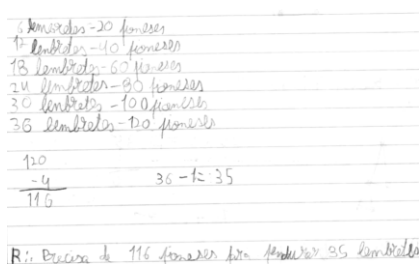 6 lembretes - 20 pioneses
12 lembretes - 40 pioneses
18 lembretes - 60 pioneses
24 lembretes - 80 pioneses
30 lembretes - 100 pioneses
36 lembretes - 120 pioneses
120
-4
116
36 - 1 = 35
R:. Precisa de 116 pioneses pira pendurar 35 lembretes